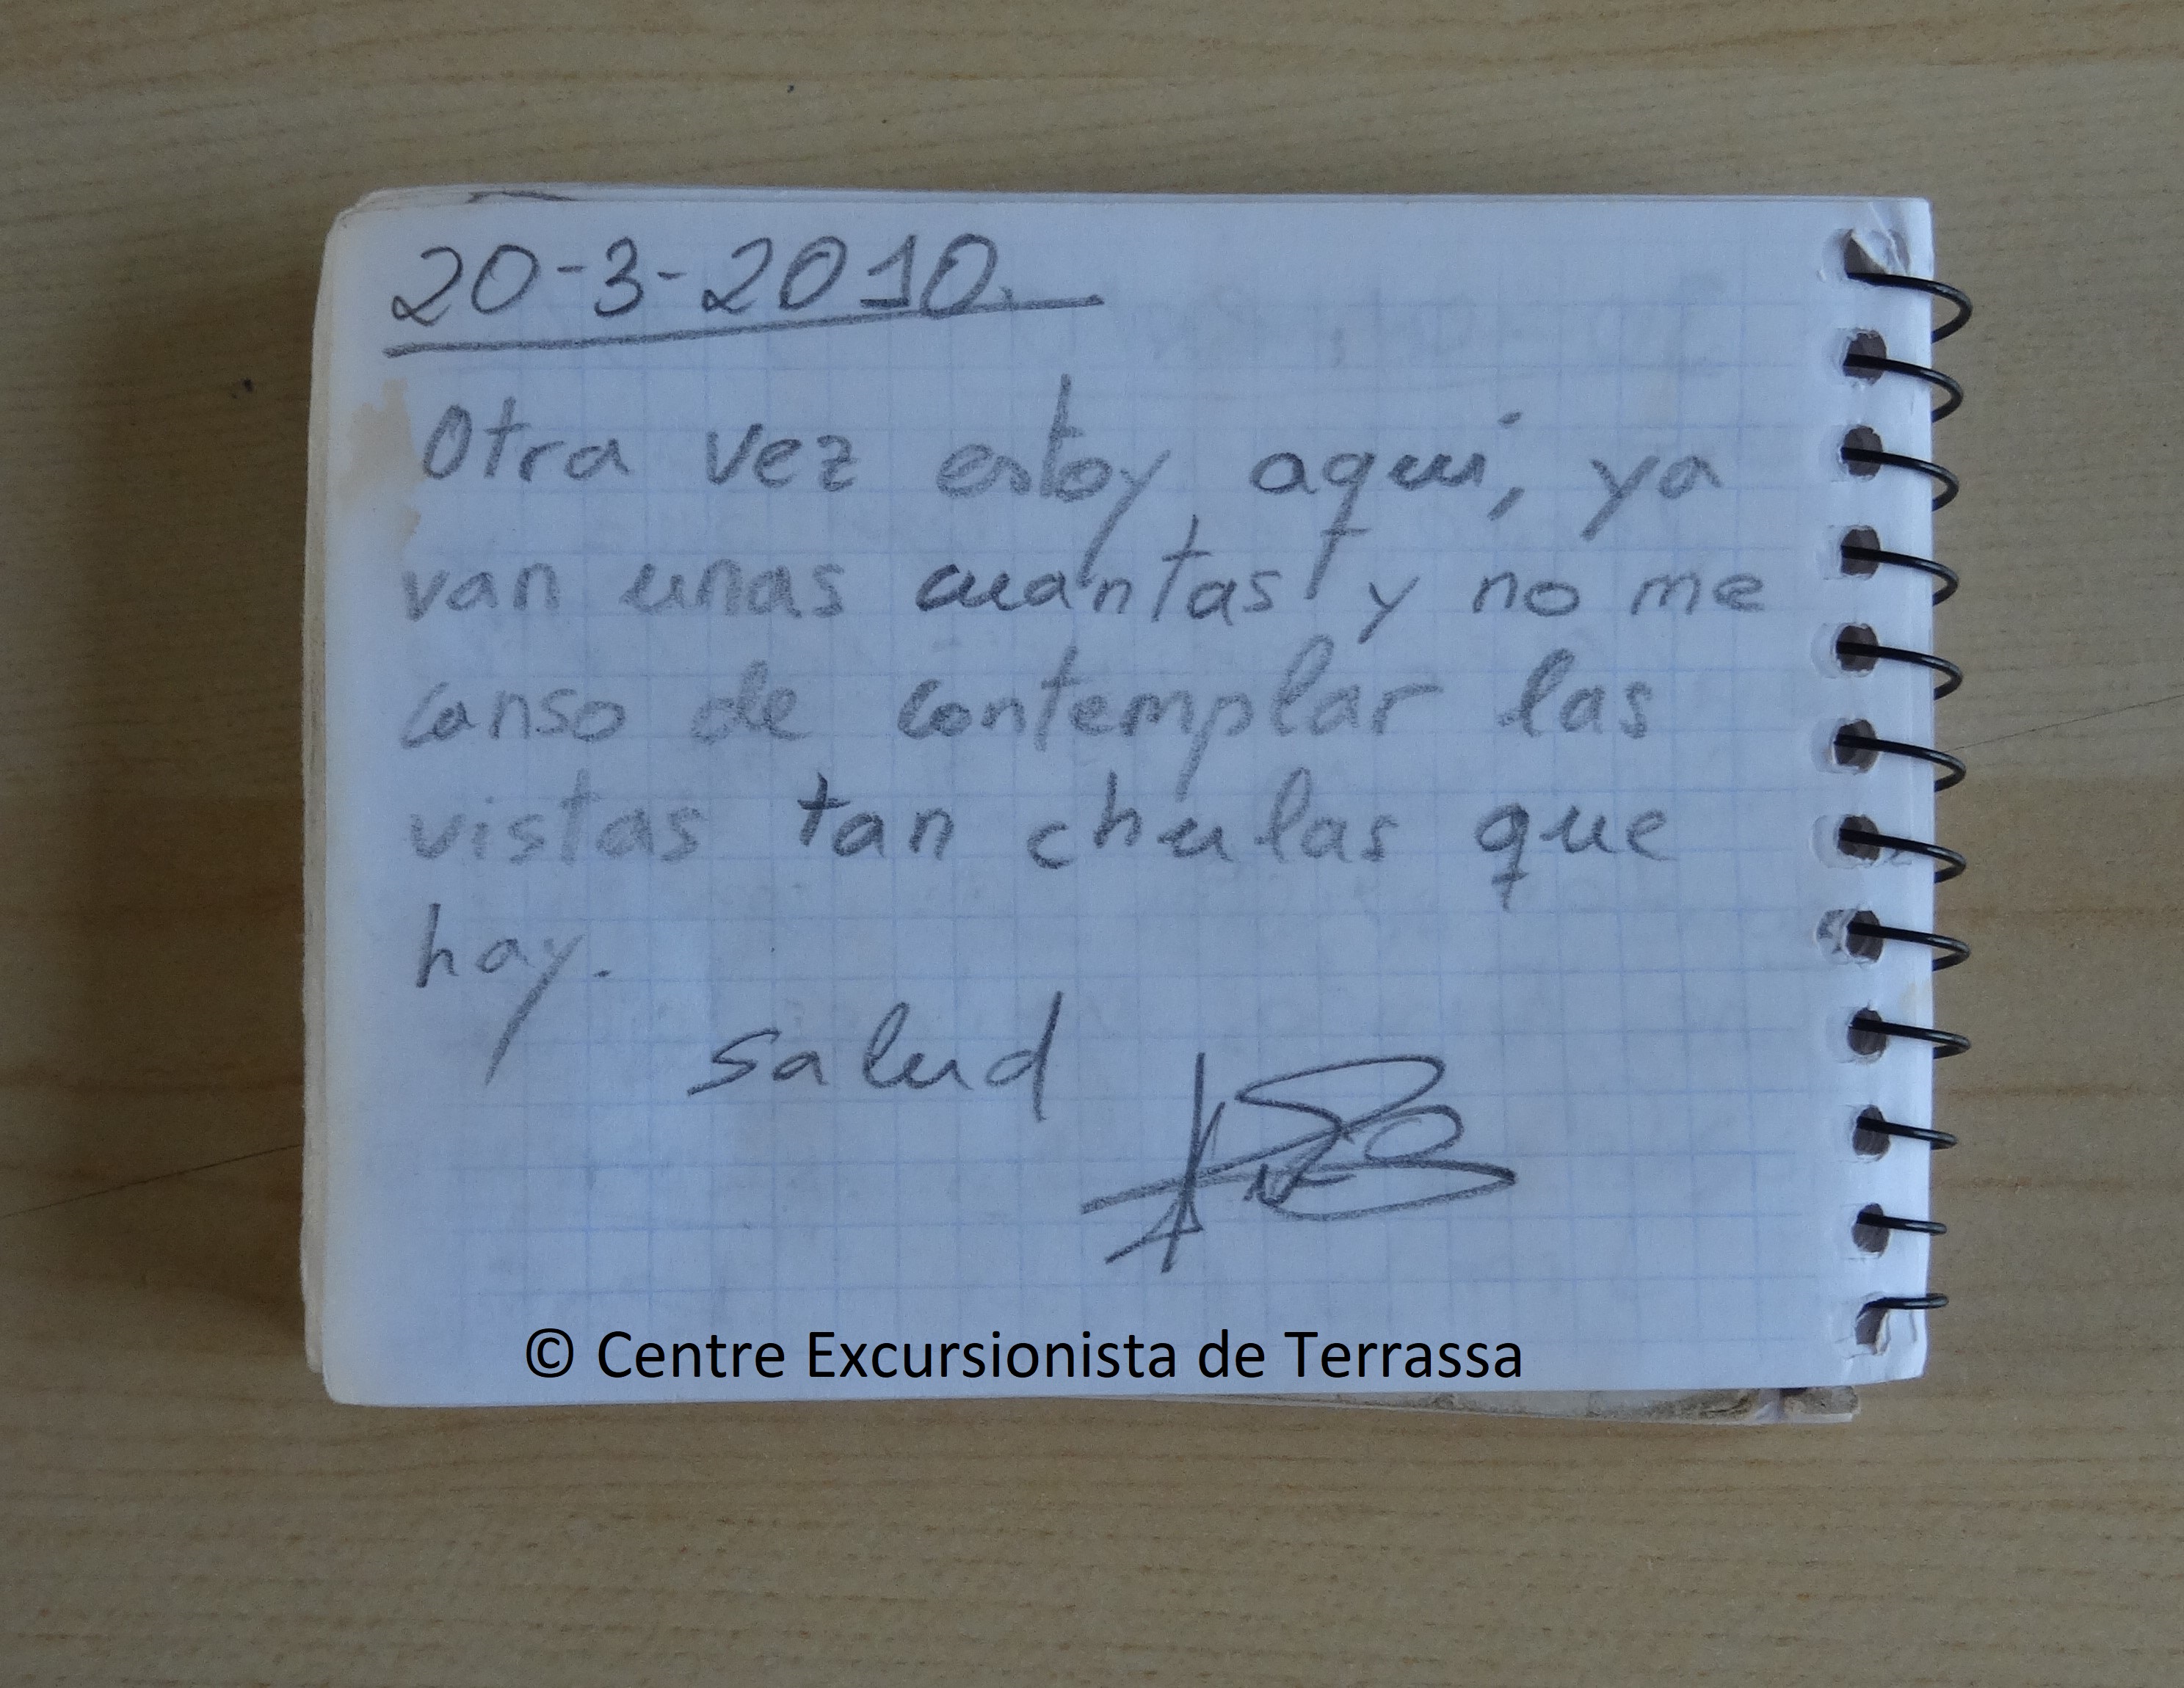 20-3-2010.
Otra vez estoy aqui, ya
van unas cuantas y no me
canso de contemplar las
vistas tan chulas que
hay.
salud
© Centre Excursionista de Terrassa